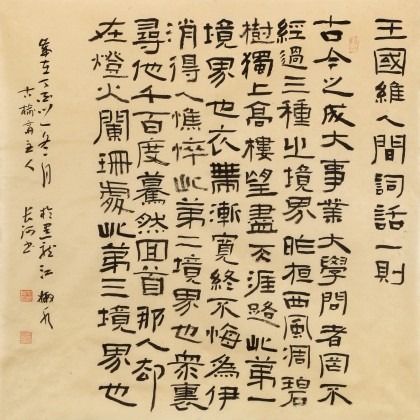 王國維人間詞話一則
古今之成大事業大學問者罔不
經過三種之境界昨夜西風凋碧
樹獨上高樓望盡天涯路此第一
境界也衣帶漸寬終不悔為伊
消得人憔悴此第二境界也衆裏
尋他千百度驀然回首那人却
在燈火闌珊處此第三境界也
歲在丁酉月於黑龍江
主人長河书